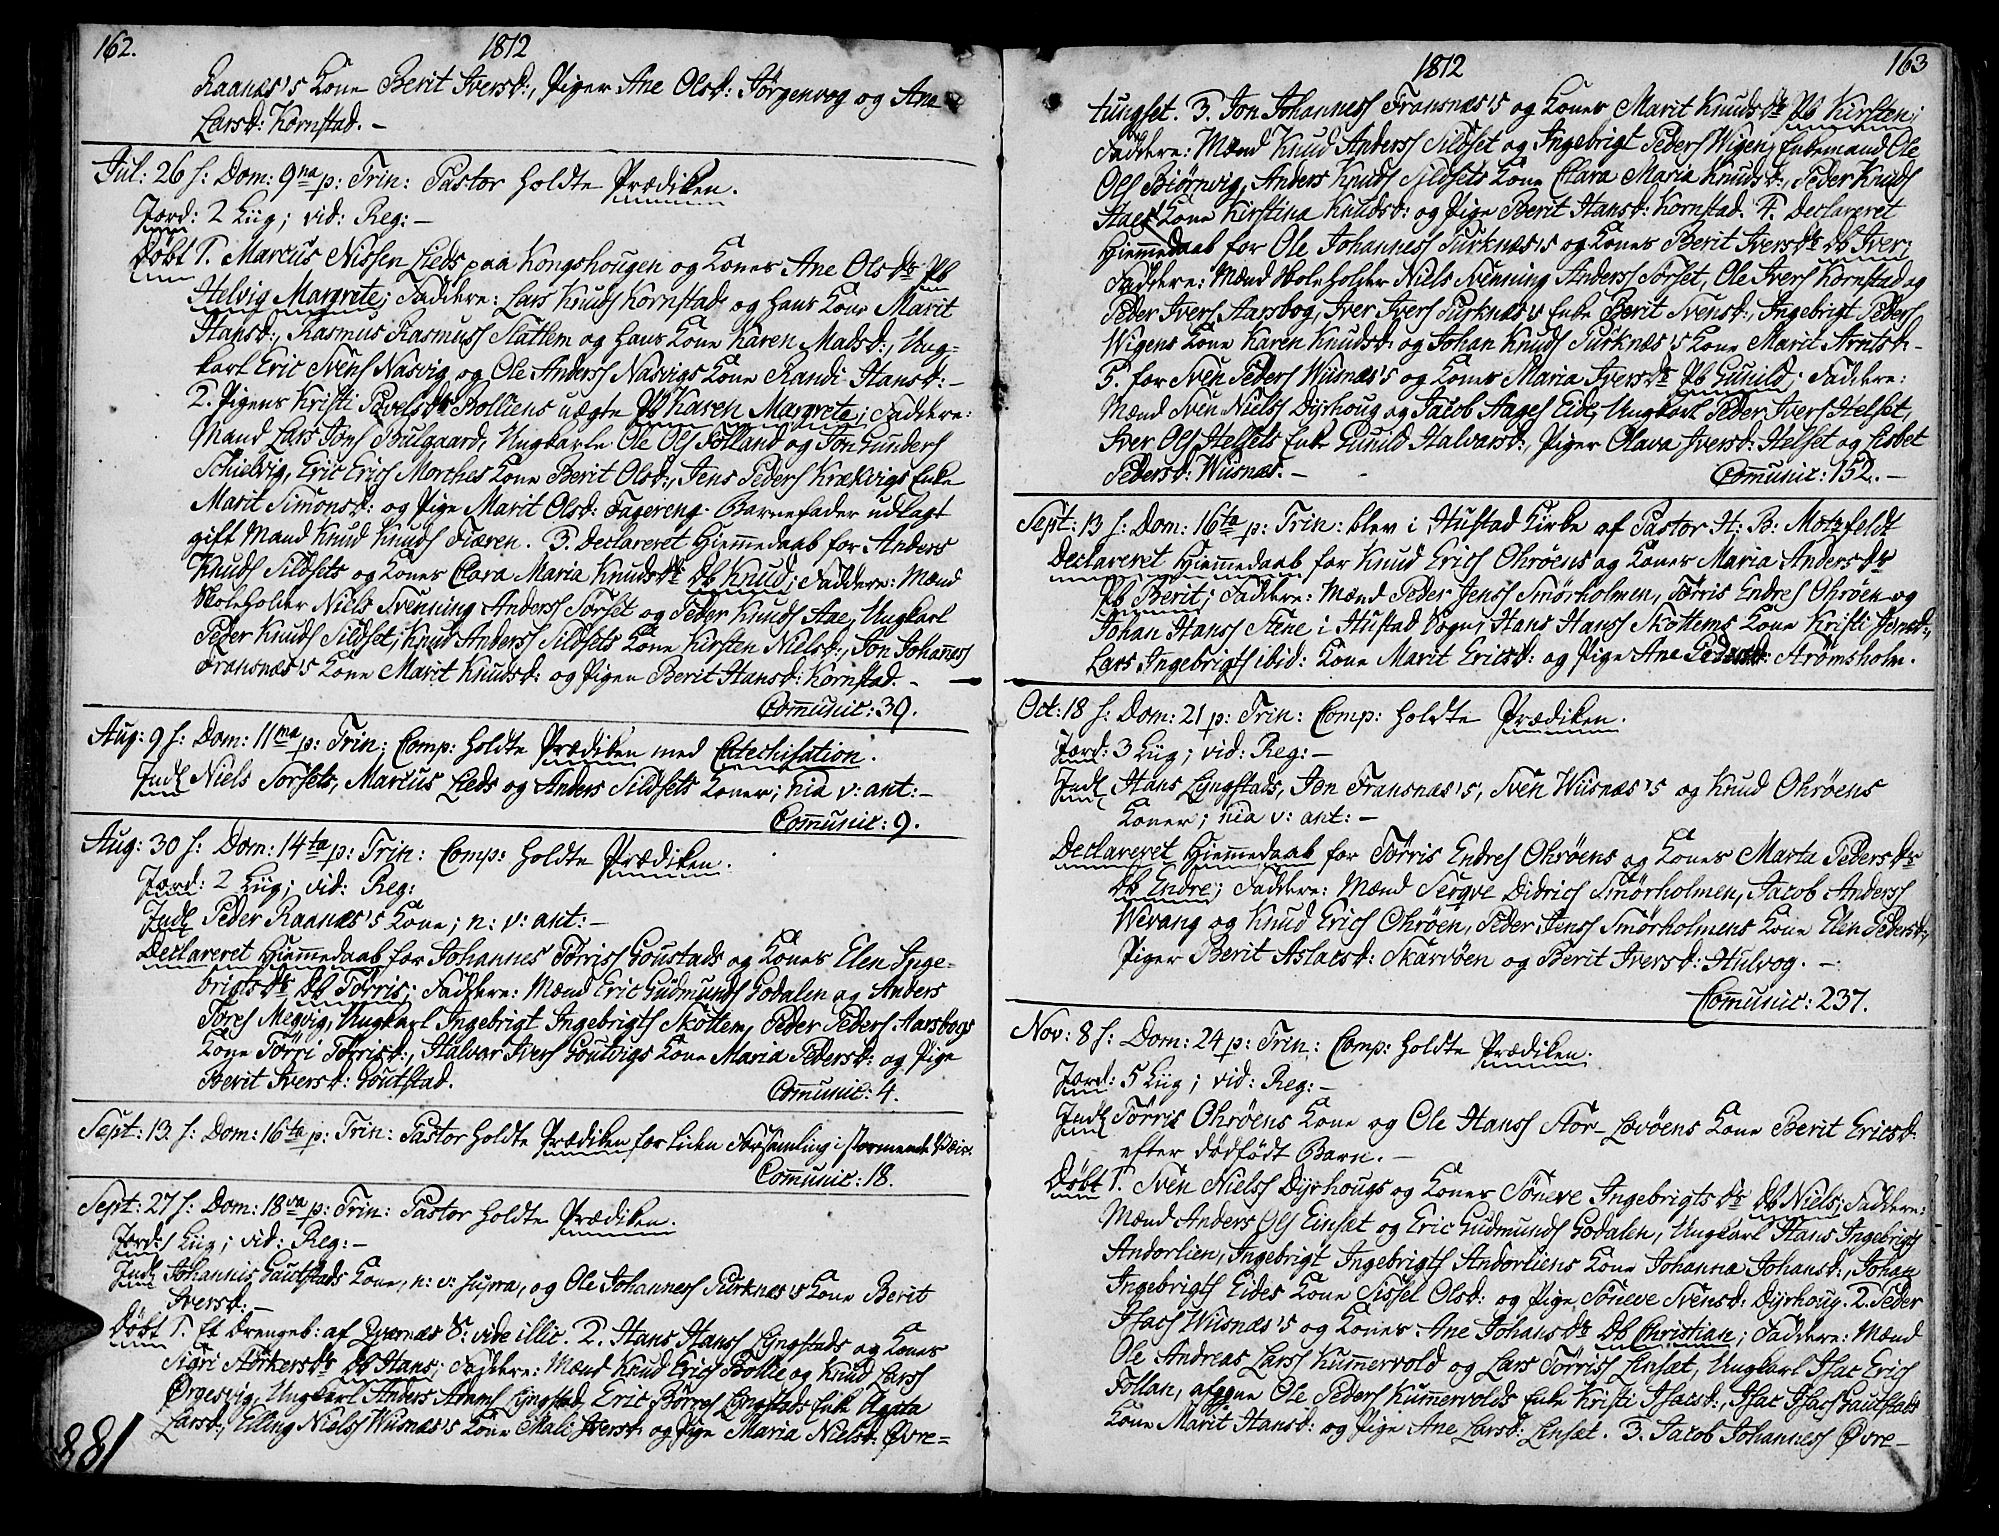 162.
1812
Raanæs's Kone Berit Iversd:, Piger Ane Olsd: Jørgenvog og Ane
Larsd: Kornstad. -
Jul: 26 f: Dom: 9na p: Trin: Pastor holdte Prædiken.
Jord: 2 Liig; vid: Reg: -
Døbt 1. Marcus Nissen Lieds paa Kongshougen og Kones Ane Olsdr Pb
Helvig Margrete; Faddere: Lars Knuds Kornstad og hans Kone Marit
Hansd:, Rasmus Rasmuss Slatlem og hans Kone Karen Madsd:, Ung-
karl Eric Svens Nasvig og Ole Anderss Nasvigs Kone Randi Hansd: -
2. Pigens Kristi Povelsdr Bolliens uægte Pb Karen Margrete; Faddere:
Mand Lars Jons Poulgaard, Ungkarle Ole Ols Folland og Jon Gunders
Schielvig, Eric Erics Morches Kone Berit Olsd:, Jens Peders Krækvigs Enke
Marit Simonsd: og Pige Marit Olsd: Fagereng. Barnefader udlagt
gift Mand Knud Knuds Fiæren. 3. Declareret Hiemmedaab for Anders
Knuds Sildsets og Kones Clara Maria Knudsdr Db Knud; Faddere: Mænd
Skoleholder Niels Svenning Anderss Torset og Peder Knuds Hae, Ungkarl
Peder Knuds Sildset, Knud Anderss Sildsets Kone Kirsten Nielsd:, Jon Johannes
Fransnæs's Kone Marit Knudsd: og Pigen Berit Hansd: Kornstad. -
Comunic: 39.
Aug: 9 f: Dom: 11ma p: Trin: Comp: holdte Prædiken med Catechisation.
Indl Niels Torsets, Marcus Lieds og Anders Sildsets Koner; hia v: ant: -
Comunic: 9.
Aug: 30 f: Dom: 14ta p: Trin: Comp: holdte Prædiken.
Jord: 2 Liig; vid: Reg:
Indl Peder Raanæs's Kone; n: v: ant: -
Declareret Hiemmedaab for Johannes Tørriss Goustads og Kones Elen Inge-
brigtsdr Db Tørris; Faddere: Mænd Eric Gudmunds Godalen og Anders
Tores Megvig, Ungkarl Ingebrigt Ingebrigts Skottem, Peder Peders Aarsbogs
Kone Tørri Tørrisd:, Halvar Ivers Goutvigs Kone Maria Pedersd: og Pige
Berit Iversd: Goutstad.
Comunic: 4.
Sept: 13. f: Dom: 16ta p: Trin: Pastor holdte Prædiken for liden Forsamling i stormende Veir.
Comunic: 18.
Sept: 27 f: Dom: 18va p: Trin: Pastor holdte Prædiken.
Jord: 1 Liig; vid: Reg: -
Indl Johannis Gautstads Kone, n: v: supra, og Ole Johanness Purknæs's Kone Berit
Iversd: -
Døbt 1. Et Drengeb: af Qvernæs S: vide illic. 2. Hans Hanss Lyngstads og Kones
Sigri Størkersdr Db Hans; Faddere: Mænd Knud Erics Bollie og Knud Larss
Ørgesvig, Ungkarl Anders Lyngstad, Eric Børres Lyngstads Enke Agata
Larsd:, Elling Niels Wusnæs's Kone Mali Iversd: og Pige Maria Nielsd: Øvre-
881
1812
163
tungset. 3. Jon Johanness Fransnæs's og Kones Marit Knudsdr Pb Kirsten;
Faddere: Mænd Knud Anderss Sildset og Ingebrigt Peders Wigen, Enkemand Ole
Ols Biørnvig, Anders Knuds Sildsets Kone Clara Maria Knudsd:, Peder Knuds
Haes Kone Kirstina Knudsd: og Pige Berit Hansd: Kornstad. 4. Declareret
Hiemmedaab for Ole Johanness Purknæs's og Kones Berit Iversdr Db Iver;
Faddere: Mænd Skoleholder Niels Svenning Anderss Torset, Ole Ivers Kornstad og
Peder Ivers Aarsbog, Iver Ivers Purknæs's Enke Berit Svensd:, Ingebrigt Peders
Wigens Kone Karen Knudsd: og Johan Knuds Purknæs's Kone Marit Arntsd: -
5. for Sven Peders Wusnæs's og Kones Maria Iversdr Pb Gunild; Faddere:
Mænd Sven Niels Dyrhoug og Jacob Aages Eide, Ungkarl Peder Ivers Helset,
Iver Ols Helsets Enke Gunild Halvarsd:, Piger Olava Iversd: Helset og Lisbet
Pedersd: Wusnæs. -
Comunic: 152. -
Sept: 13 f: Dom: 16ta p: Trin: blev i Hustad Kirke af Pastor H: B: Motzfeldt
Declareret Hiemmedaab for Knud Erics Ohrøens og Kones Maria Andersdr
Pb Berit; Faddere: Mænd Peder Jenss Smørholmen, Tørris Endres Ohrøen og
Johan Hanss Stene i Hustad Sogn, Hans Hanss Skottems Kone Kristi Jensd:,
Lars Ingebrigts ibid: Kone Marit Ericsd: og Pige Ane Pedersd: Strømsholm.
Oct: 18 f: Dom: 21 p: Trin: Comp: holdte Prædiken.
Jord: 3 Liig; vid: Reg: -
Indl Hans Lyngstads, Jon Fransnæs's, Sven Wusnæs's og Knud Ohrøens
Koner; hia v: ant: -
Declareret Hiemmedaab for Tørris Endres Ohrøens og Kones Marta Pedersdr
Db Endre; Faddere: Mænd Seqve Didrics Smørholmen, Jacob Anderss
Wevang og Knud Erics Ohrøen, Peder Jenss Smørholmens Kone Elen Pedersd:,
Piger Berit Aslacsd: Skarvøen og Berit Iversd: Hulvog. -
Comunic: 237.
Nov: 8 f: Dom: 24 p: Trin: Comp: holdte Prædiken.
Jord: 5 Liig; vid: Reg: -
Indl Tørris Ohrøens Kone og Ole Hanss Stor-Lovøens Kone Berit Ericsd:
efter dødfødt Barn. -
Døbt 1. Sven Nielss Dyrhougs og Kones Søneve Ingebrigtsdr Db Niels; Faddere:
Mænd Anders Ols Einsæt og Eric Gudmunds Godalen, Ungkarl Hans Ingebrigts
Andorlien, Ingebrigt Ingebrigts Andorliens Kone Johanna Johansd:, Johan
Ingebrigts Eides Kone Sissel Olsd: og Pige Søneve Svensd: Dyrhoug. 2. Peder
Isacs Wusnæs's og Kones Ane Johansdr Db Christian; Faddere: Mænd
Ole Andreas Larss Kummervold og Lars Tørriss Linsæt, Ungkarl Isac Erics
Follan, afgne Ole Peders Kummervolds Enke Kristi Isacsd:, Isac Isacs Gautstads
Kone Marit Hansd: og Pige Ane Larsd: Linsæt. 3. Jacob Johanness Øvre-